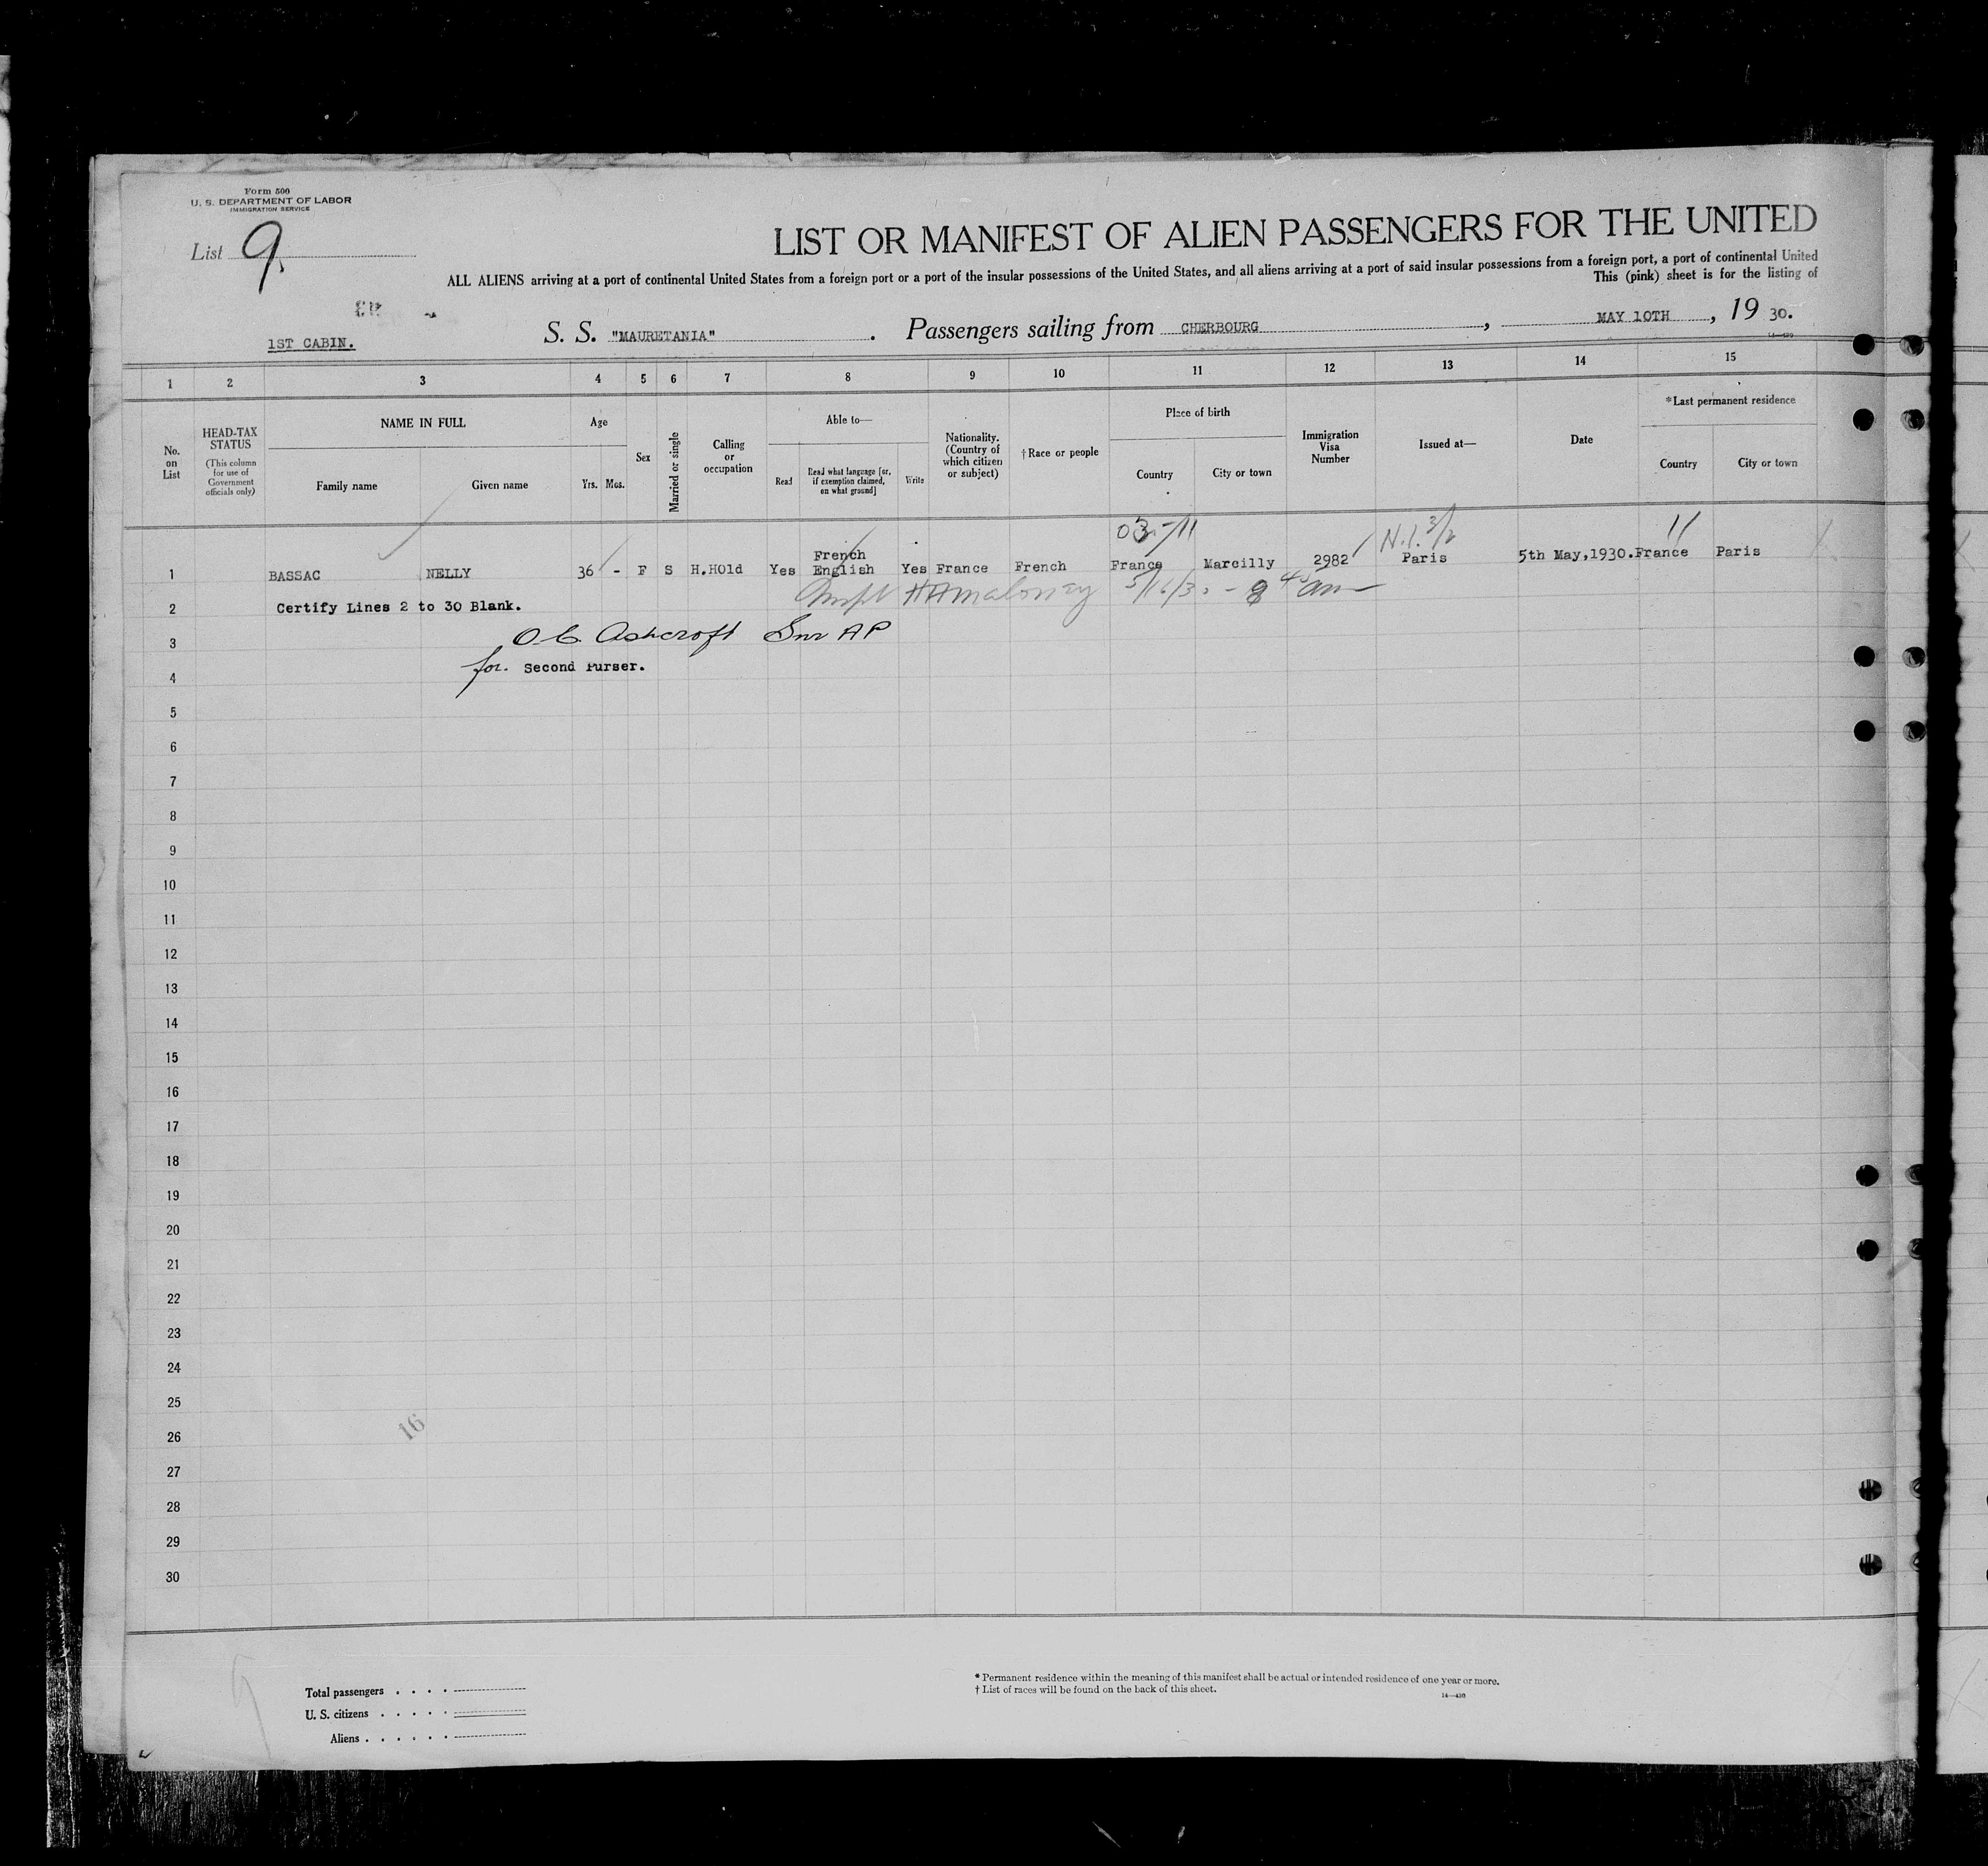 Form 500
U. S. DEPARTMENT OF LABOR
IMMIGRATION SERVICE
List 9.
LIST OR MANIFEST OF ALIEN PASSENGERS FOR THE UNITED
ALL ALIENS arriving at a port of continental United States from a foreign port or a port of the insular possessions of the United States, and all aliens arriving at a port of said insular possessions from a foreign port, a port of continental United
This (pink) sheet is for the listing of
1ST CABIN.
S. S. "MAURETANIA" . Passengers sailing from CHERBOURG , MAY 10TH , 19 30.
14—430
1 2 3 4 5 6 7 8 9 10 11 12 13 14 15
No. on List
HEAD-TAX STATUS
(This column for use of Government officials only)
NAME IN FULL
Family name Given name
Age
Yrs. Mos.
Sex
Married or single
Calling or occupation
Able to—
Read
Read what language [or, if exemption claimed, on what ground]
Write
Nationality. (Country of which citizen or subject)
†Race or people
Place of birth
Country City or town
Immigration Visa Number
Issued at—
Date
*Last permanent residence
Country City or town
03-/11 N.I. 3/2 11
French
1 BASSAC NELLY 36 - F S H.HOld Yes English Yes France French France Marcilly 2982 Paris 5th May,1930. France Paris
2 Certify Lines 2 to 30 Blank.
HAMaloney
3 Ashcroft Snr AP
4 for. Second Purser.
5
6
7
8
9
10
11
12
13
14
15
16
17
18
19
20
21
22
23
24
25
16
26
27
28
29
30
Total passengers . . . .
U. S. citizens . . . . .
Aliens . . . . . .
* Permanent residence within the meaning of this manifest shall be actual or intended residence of one year or more.
† List of races will be found on the back of this sheet.
14—430